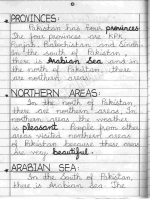 PROVINCES:
Pakistan has four provinces
The four provinces are KPK
Punjab, Balochistan and Sindh
In the south of Pakistan,
there is Arabian Sea and in
the north of Pakistan, there
are northern areas.
NORTHERN AREAS:
In the north of Pakistan,
there are northern areas. In
northern areas the weather
is pleasant. People from other
areas visited northern areas
of Pakistan because these areas
are very beautiful.
ARABIAN SEA:
In the South of Pakistan,
there is Arabian Sea. The